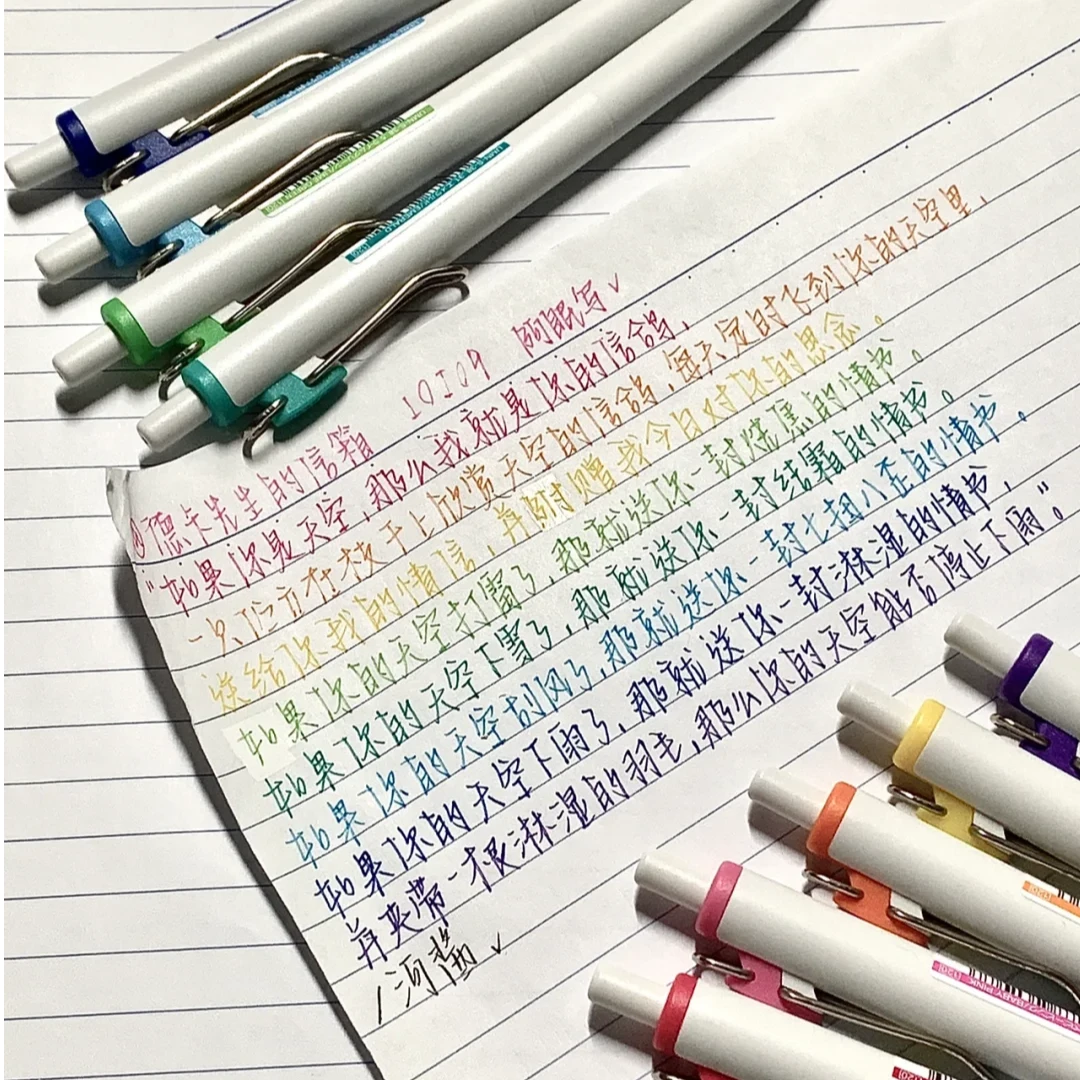 10109 阿眠写✓
@德卡先生的信箱
"如果你是天空，那么我就是你的信鸽，
一只伫立在枝干上欣赏天空的信鸽，每天定时飞到你的天空里，
送给你我的情信，并附赠我今日对你的思念。
如果你的天空打雷了，那就送你一封烧焦的情书。
如果你的天空下雪了，那就送你一封结霜的情书。
如果你的天空刮风了，那就送你一封七扭八歪的情书。
如果你的天空下雨了，那就送你一封淋湿的情书，
并夹带一根淋湿的羽毛，那么你的天空能否停止下雨。"
/河酱✓
BABY PINK